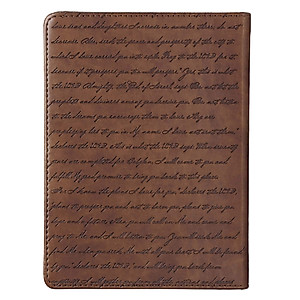 sons and daughters. Increase in number there; do not
decrease. Also, seek the peace and prosperity of the city to
which I have carried you into exile. Pray to the LORD for it,
because if it prospers, you too will prosper." Yes, this is what
the LORD Almighty, the God of Israel, says: "Do not let the
prophets and diviners among you deceive you. Do not listen
to the dreams you encourage them to have. They are
prophesying lies to you in my name. I have not sent them,"
declares the LORD. This is what the LORD says: "When seventy
years are completed for Babylon, I will come to you and
fulfill my good promise to bring you back to this place.
For I know the plans I have for you," declares the LORD,
"plans to prosper you and not to harm you, plans to give you
hope and a future. Then you will call on me and come and
pray to me, and I will listen to you. You will seek me and
find me when you seek me with all your heart. I will be found
by you," declares the LORD, "and will bring you back from